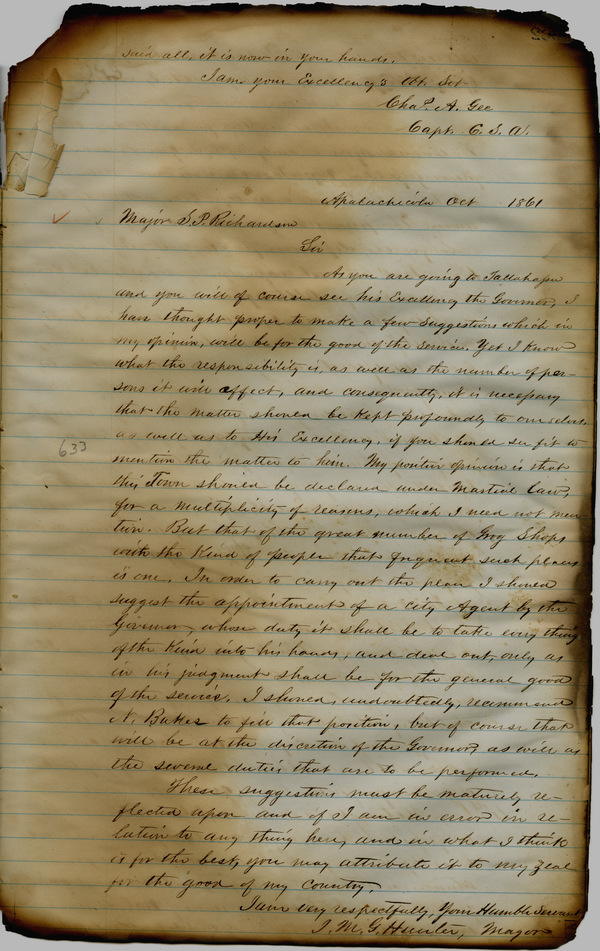 said all, it is now in your hands.
I am your Excellencys Obt. Svt
Chas. A. Gee
Capt. C. S. A.
Apalachicola Oct 1861
Major S. P. Richardson
Sir
As you are going to Tallahassee
and you will of course see his Excellency the Governor, I
have thought proper to make a few suggestions which in
my opinion, will be for the good of the service. Yet I know
what the responsibility is, as well as the number of per-
sons it will effect, and consequently, it is necessary
that the matter should be kept profoundly to ourselves
as well as to His Excellency, if you should see fit to
633
mention the matter to him. My positive opinion is that
this Town should be declared under Martial law,
for a multiplicity of reasons, which I need not men
tion. But that of the great number of Grog Shops
with the kind of people that frequent such places
is one. In order to carry out the plan I should
suggest the appointment of a City Agent by the
Governor, whose duty it shall be to take every thing
of the kind into his hands, and deal out, only as
in his judgment shall be for the general good
of the service. I should, undoubtedly, recommend
N. Baker to fill that position, but of course that
will be at the discretion of the Governor, as well as
the several duties that are to be performed.
These suggestions must be maturely re-
flected upon and if I am in error in re-
lation to any thing here, and in what I think
is for the best, you may attribute it to my zeal
for the good of my country.
I am very respectfully, Your Humble Servant
J. M. G. Hunter, Mayor